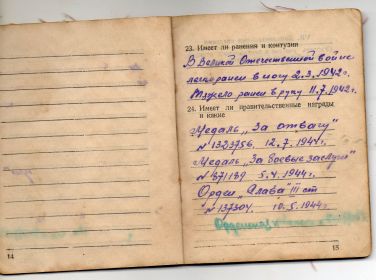 23. Имеет ли ранения и контузии
В Великой Отечественной войне
легко ранен в ногу 2.3.1942 г.
Тяжело ранен в руку 11.7.1942 г.
24. Имеет ли правительственные награды
и какие
Медаль „За отвагу"
№ 1323756. 12.7.1944 г.
Медаль „За боевые заслуги"
№ 871189 5.4.1944 г.
Орден „Слава" III ст
№ 137304 10.5.1944 г.
14
15